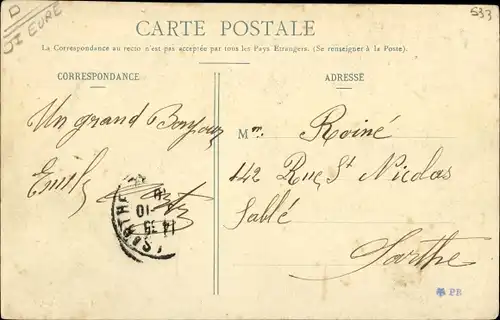 D
27 EURE
533
CARTE POSTALE
La Correspondance au recto n'est pas acceptée par tous les Pays Etrangers. (Se renseigner à la Poste).
CORRESPONDANCE
ADRESSE
Un grand Bonjour
Emile
Mr. Roiné
42 Rue St Nicolas
Sablé
Sarthe
14 35
10
SARTHE
PR